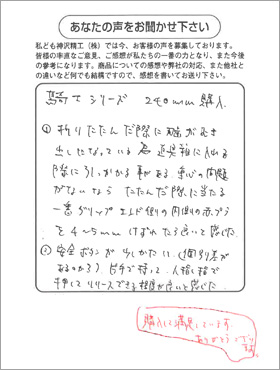 あなたの声をお聞かせ下さい
私ども神沢精工（株）では今、お客様の声を募集しております。
皆様の率直なご意見、ご感想が私たちの一番の力となり、また今後
の参考になります。商品についての感想や弊社の対応、また他社と
の違いなど何でも結構ですので、感想を書いてお送り下さい。
シリーズ 240mm 購入
① 折りたたんだ際に がむき
出しになっている為 に入れる
際に引っかかる事がある 問題
がないなら たたんだ際に当たる
一番グリップエンド側の内側の赤プラ
を4〜5mm けずれたら良いと感じた
② 安全ボタンが出しかたい。(個別差が
あるのか？) 片手で持って、人指し指で
押してリリースできる程度が良いと感じた
購入して満足しています。
ありがとうござい
ます。